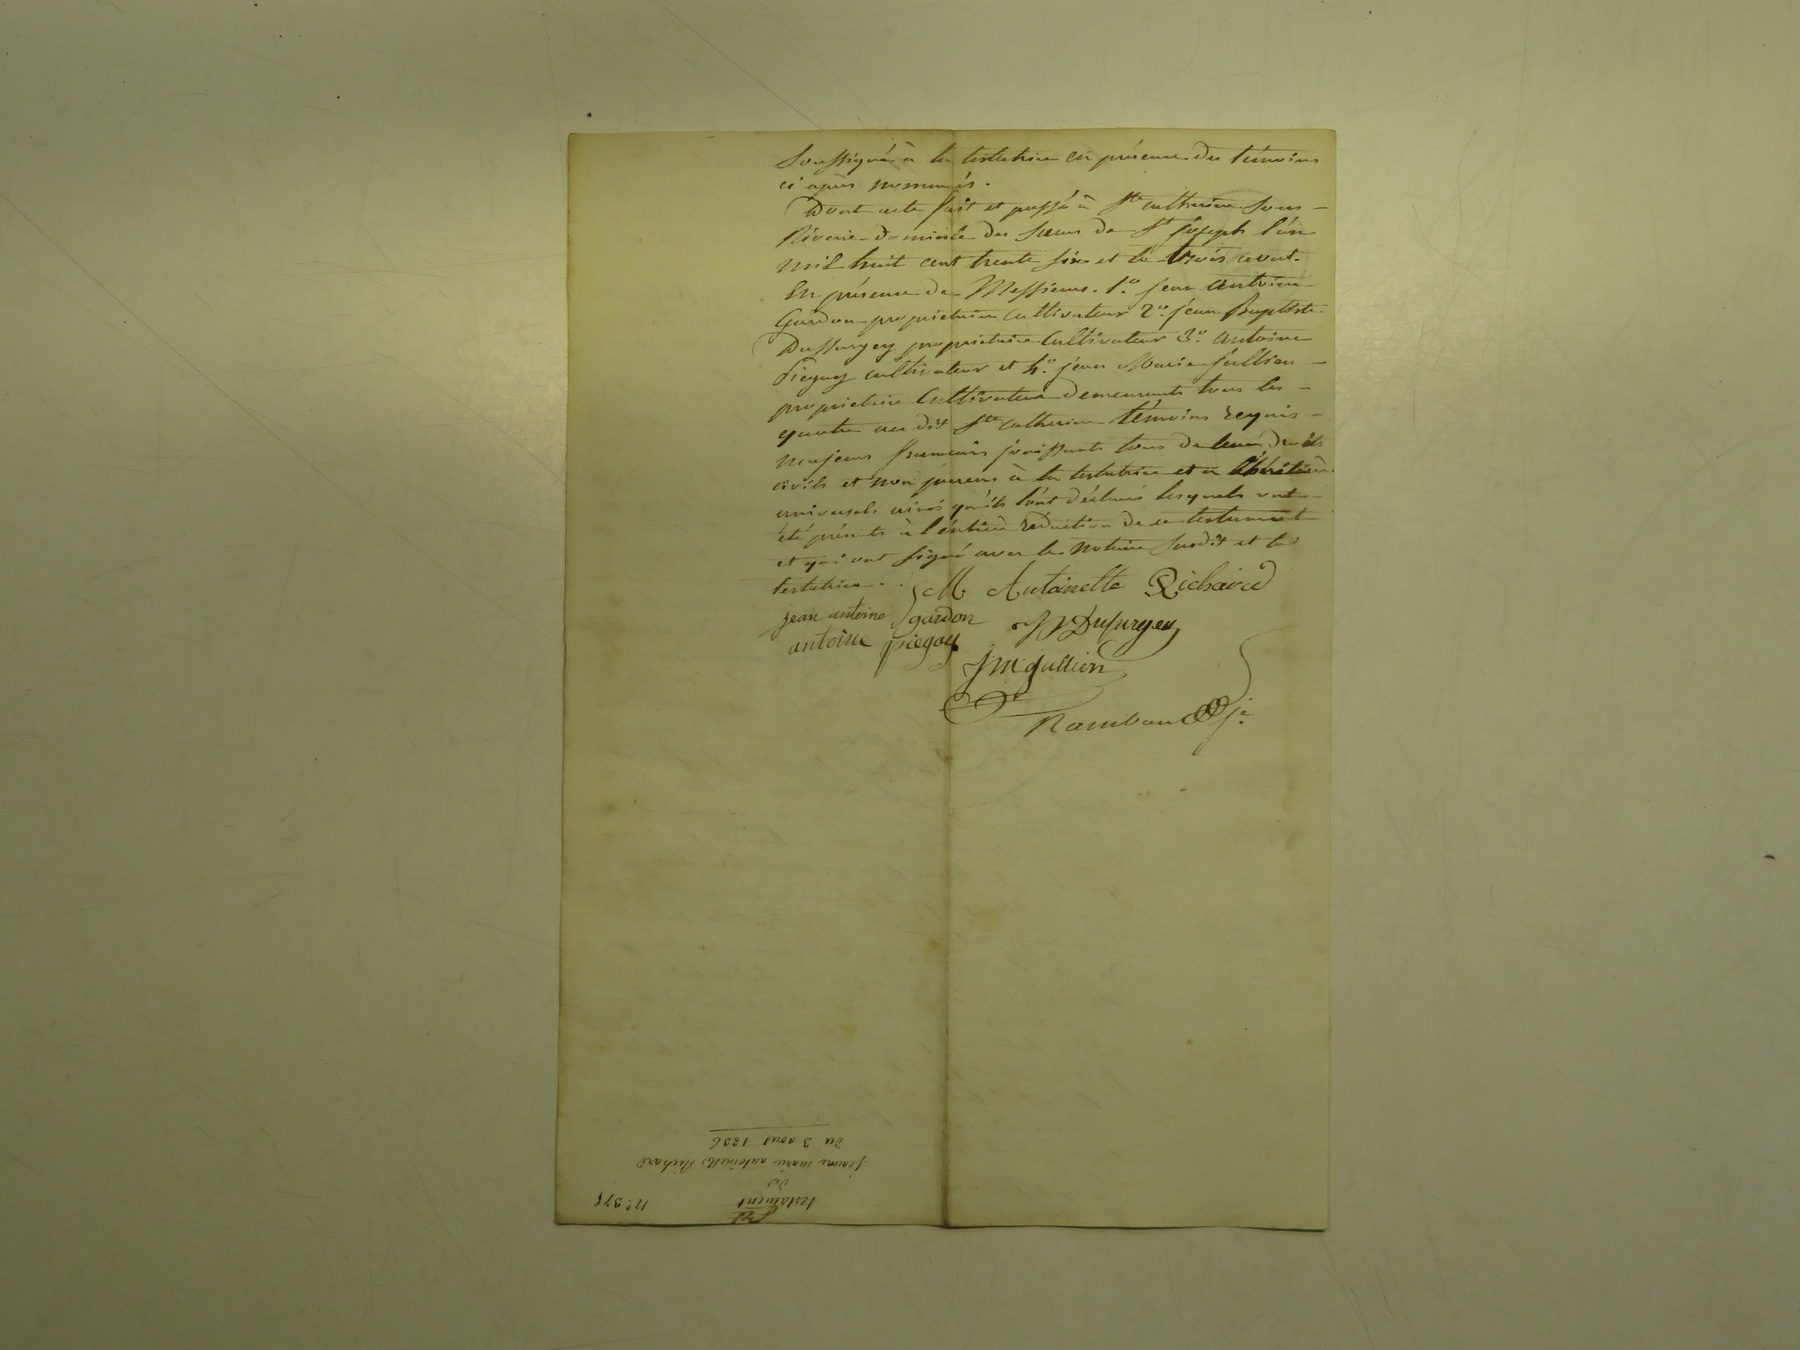 soussigné à la testatrice en présence des témoins
ci après nommés.
Dont acte fait et passé à Ste catherine sous-
Riverie domicile des sœurs de St Joseph l'an
mil huit cent trente six et le trois aout.
En présence de Messieurs. 1.° jean antoine
Gardon propriétaire cultivateur 2.° jean Baptiste
Dussurgey propriétaire cultivateur 3.° antoine
Piegay cultivateur et 4.° jean Marie jullien
propriétaire cultivateur demeurants tous les
quatre au dit Ste catherine témoins requis
majeurs français jouissants tous de leurs droits
civils et non parens à la testatrice et a l'héritière
universels ainsi qu'ils l'ont déclaré lesquels ont
été présents à l'entière rédaction de ce testament
et qui ont signé avec le notaire susdit et la
testatrice.
M Antoinette Richard
jean antoine gardon JB Dusurgey
antoine piegay
jm jullien
Rambaud je
testament
de
jeanne marie antoinette Richard
du 3 aout 1836